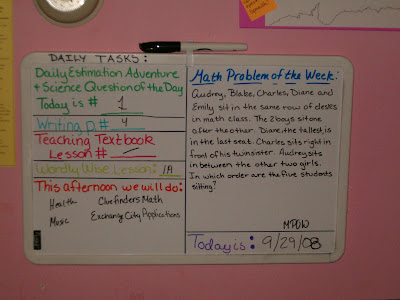 DAILY TASKS:
Daily Estimation Adventure
+ Science Question of the Day
Today is # 1
Writing p# 4
Teaching Textbook
Lesson#
Wordly Wise Lesson: 1A
This afternoon we will do:
Health Cluefinders Math
Music Exchange City Applications
Math Problem of the Week:
Audrey, Blake, Charles, Diane and
Emily sit in the same row of desks
in math class. The 2 boys sit one
after the other. Diane, the tallest, is
in the last seat. Charles sits right in
front of his twin sister. Audrey sits in
between the other two girls.
In which order are the five students
sitting?
MPOW
Today is: 9/29/08